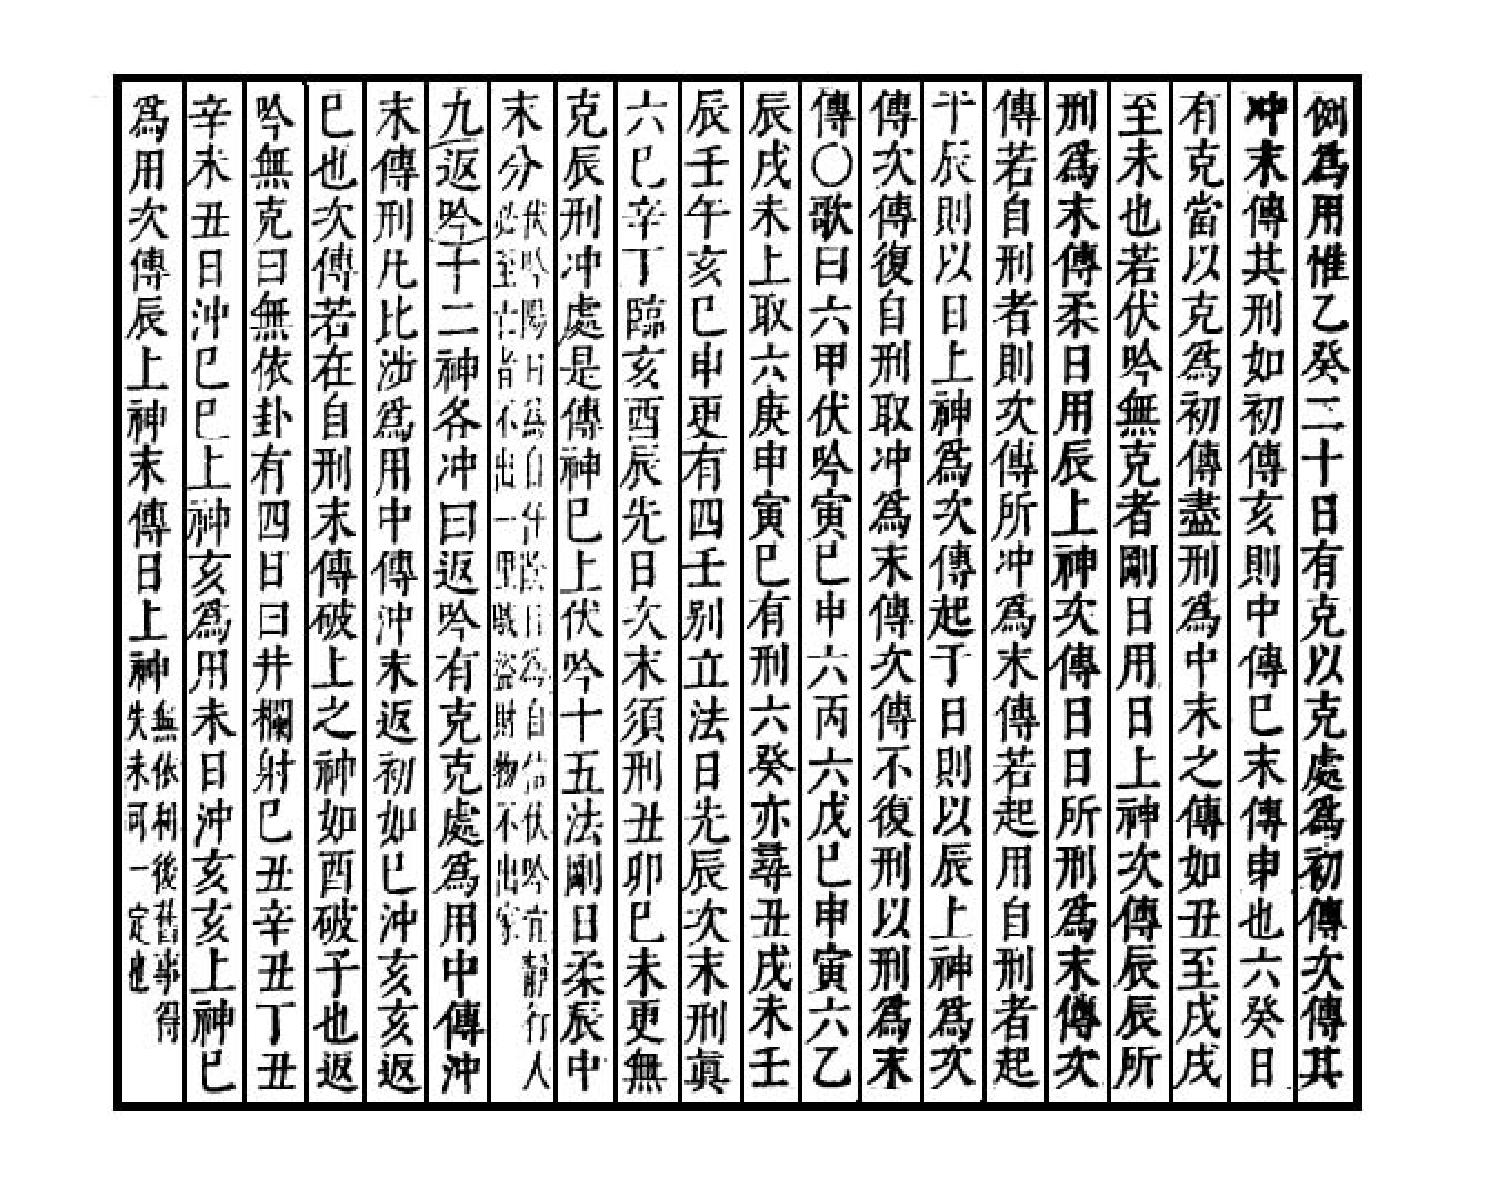 例爲用惟乙癸二十日有克以克處爲初傳次傳其
冲末傳其刑如初傳亥則中傳巳末傳申也六癸日
有克當以克爲初傳盡刑爲中末之傳如丑至戌戌
至未也若伏吟無克者剛日用日上神次傳辰辰所
刑爲末傳柔日用辰上神次傳日日所刑爲末傳次
傳若自刑者則次傳所冲爲末傳若起用自刑者起
于辰則以日上神爲次傳起于日則以辰上神爲次
傳次傳復自刑取冲爲末傳次傳不復刑以刑爲末
傳〇歌曰六甲伏吟寅巳申六丙六戊巳申寅六乙
辰戌未上取六庚申寅巳有刑六癸亦尋丑戌未壬
辰壬午亥巳申更有四壬别立法日先辰次末刑眞
六巳辛丁臨亥酉辰先日次末須刑丑卯巳未更無
克辰刑冲處是傳神巳上伏吟十五法剛日柔辰中
末分
伏吟陽日爲自任陰日爲自信伏吟宜靜行人
必至亡者不出一里賊盗財物不出家
九返吟十二神各冲曰返吟有克克處爲用中傳沖
末傳刑凡比涉爲用中傳沖末返初如巳沖亥亥返
巳也次傳若在自刑末傳破上之神如酉破子也返
吟無克曰無依卦有四日曰井欄射巳丑辛丑丁丑
辛未丑日沖巳巳上神亥爲用未日沖亥亥上神巳
爲用次傳辰上神末傳日上神
無依利後舊事得
失未可一定也